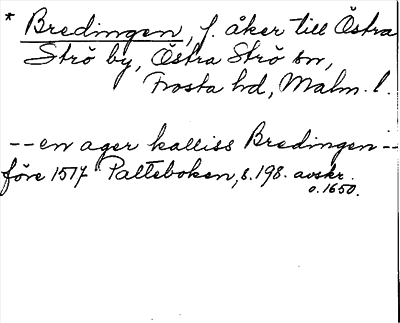 * Bredingen, f. åker till Östra
Strö by, Östra Strö sn,
Frosta hd, Malm. l.
-- en ager kalliss Bredingen --
före 1517 Palteboken, s. 198. avskr.
o. 1650.